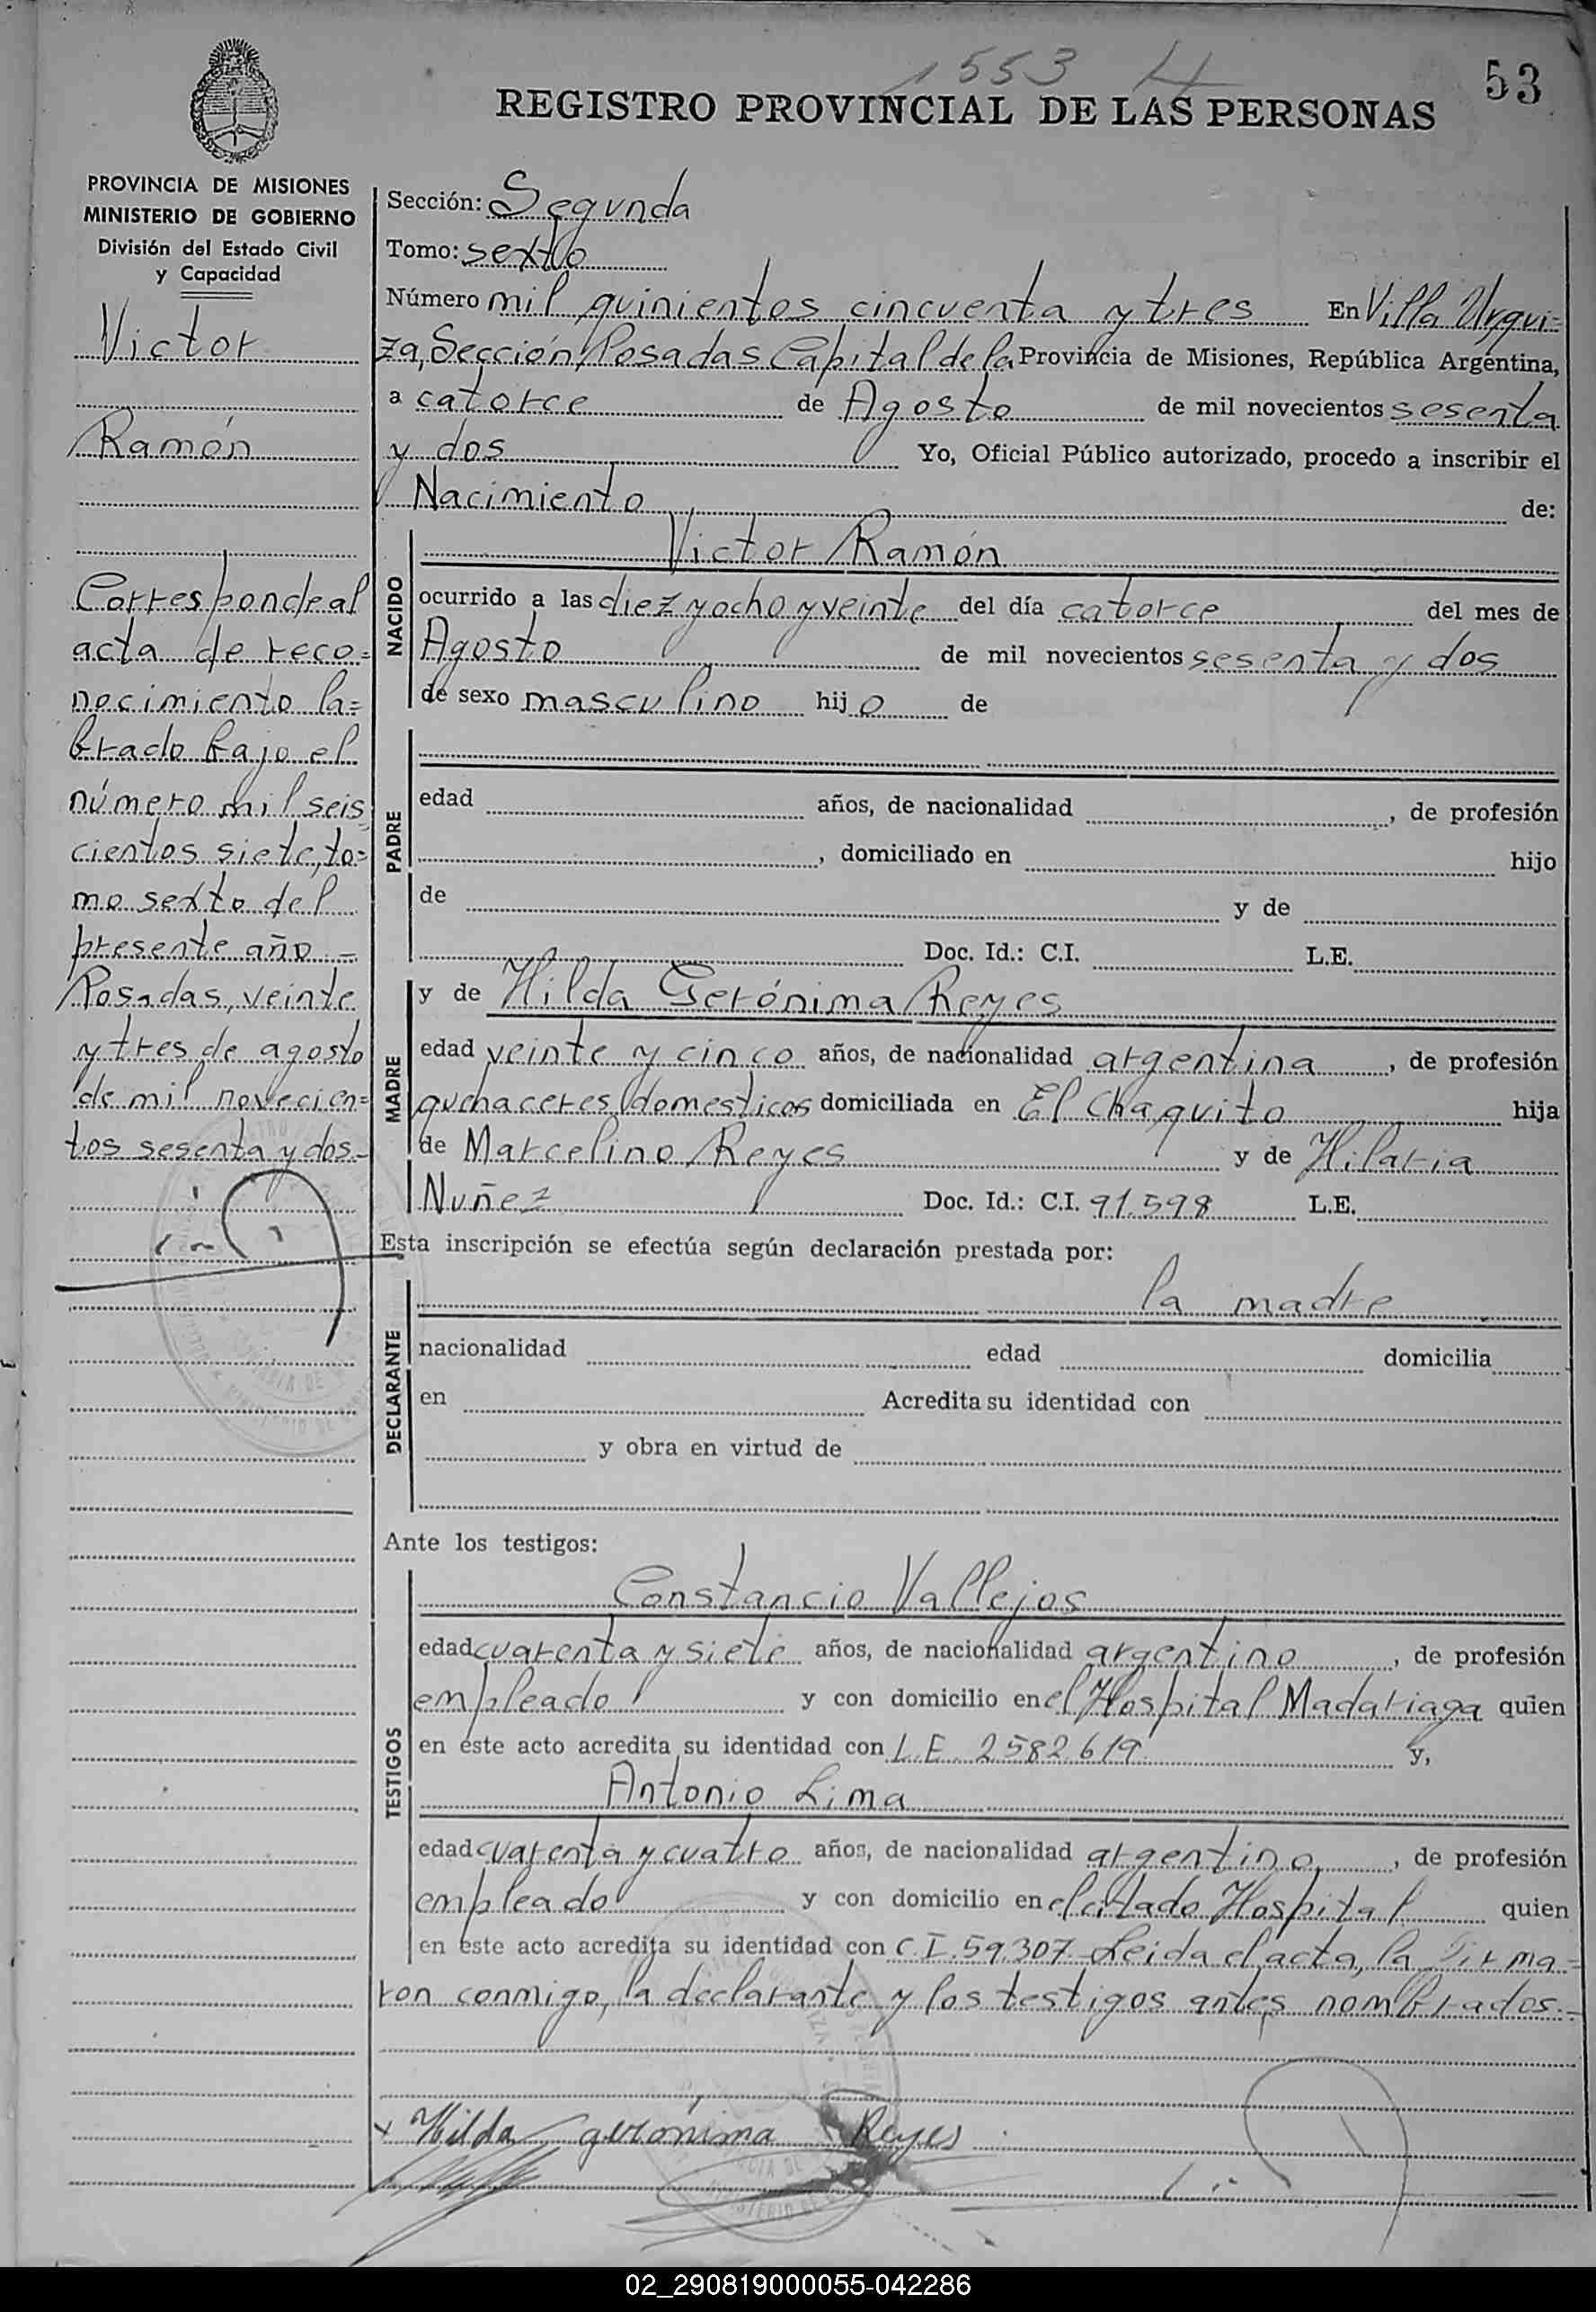 1553 4
53
REGISTRO PROVINCIAL DE LAS PERSONAS
PROVINCIA DE MISIONES
MINISTERIO DE GOBIERNO
División del Estado Civil
y Capacidad
Victor
Ramón
Corresponde al
acta de reco=
nocimiento la=
brado bajo el
número mil seis
cientos siete, to=
mo sexto del
presente año.-
Posadas, veinte
y tres de agosto
de mil novecien=
tos sesenta y dos.-
Sección: Segunda
Tomo: sexto
Número mil quinientos cincuenta y tres En Villa Urqui=
za, Sección Posadas Capital de la Provincia de Misiones, República Argentina,
a catorce de Agosto de mil novecientos sesenta
y dos Yo, Oficial Público autorizado, procedo a inscribir el
Nacimiento de:
NACIDO
Victor Ramón
ocurrido a las diez y ocho y veinte del día catorce del mes de
Agosto de mil novecientos sesenta y dos
de sexo masculino hijo de
PADRE
edad años, de nacionalidad , de profesión
, domiciliado en hijo
de y de
Doc. Id.: C.I. L.E.
MADRE
y de Hilda Gerónima Reyes
edad veinte y cinco años, de nacionalidad argentina , de profesión
quehaceres domesticos domiciliada en El Chaquito hija
de Marcelino Reyes y de Hilaria
Nuñez Doc. Id.: C.I. 91.598 L.E.
Esta inscripción se efectúa según declaración prestada por:
DECLARANTE
la madre
nacionalidad edad domicilia
en Acredita su identidad con
y obra en virtud de
Ante los testigos:
TESTIGOS
Constancio Vallejos
edad cuarenta y siete años, de nacionalidad argentino , de profesión
empleado y con domicilio en el Hospital Madariaga quien
en este acto acredita su identidad con L.E. 2582.619 y,
Antonio Lima
edad cuarenta y cuatro años, de nacionalidad argentino , de profesión
empleado y con domicilio en el citado Hospital quien
en este acto acredita su identidad con C.I. 59.307. Leida el acta, la firma=
ron conmigo, la declarante y los testigos antes nombrados.-
x Hilda gerónima Reyes
02_290819000055-042286